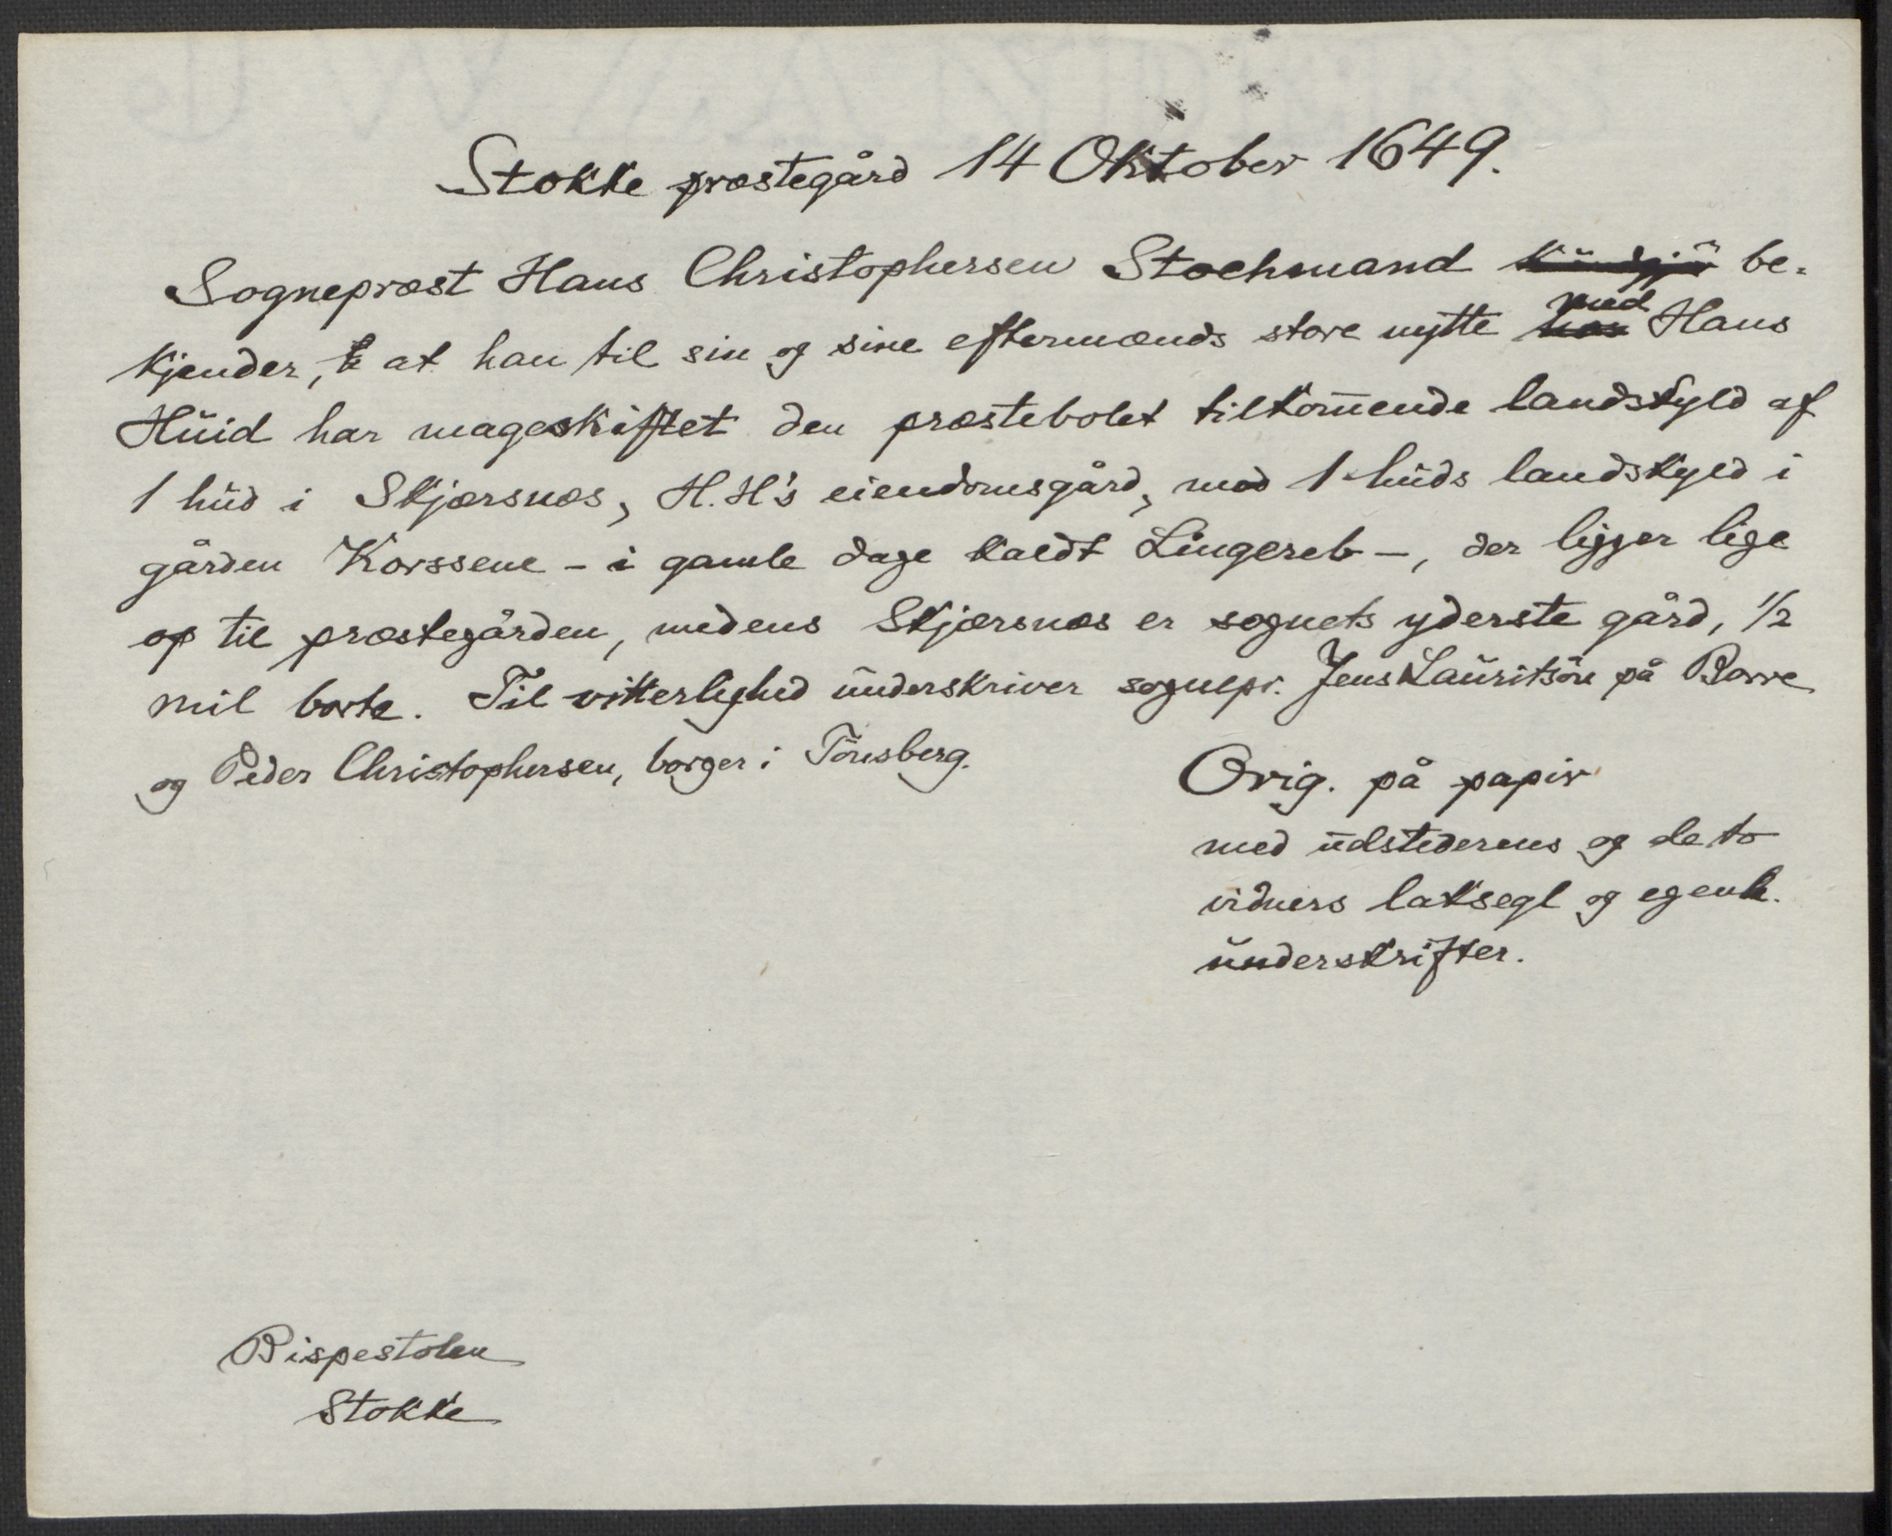 Stokke præstegård 14 Oktober 1649.
Sognepræst Hans Christophersen Stochmand be-
kjender, at han til sin og sine eftermænds store nytte med Hans
Huid har mageskiftet den præstebolet tilkommende landskyld af
1 hud i Skjærsnæs, H.H's eiendomsgård, med 1 huds landskyld i
gården Korssene - i gamle dage kaldt Lingereb -, der ligger lige
op til præstegården, medens Skjærsnæs er sognets yderste gård, 1/2
mil borte. Til vitterlighed underskriver sognepr. Jens Lauritsön på Borre
og Peder Christophersen, borger i Tönsberg.
Orig. på papir
med udstederens og de to
vidners laksegl og egenh.
underskrifter.
Bispestolen
Stokke